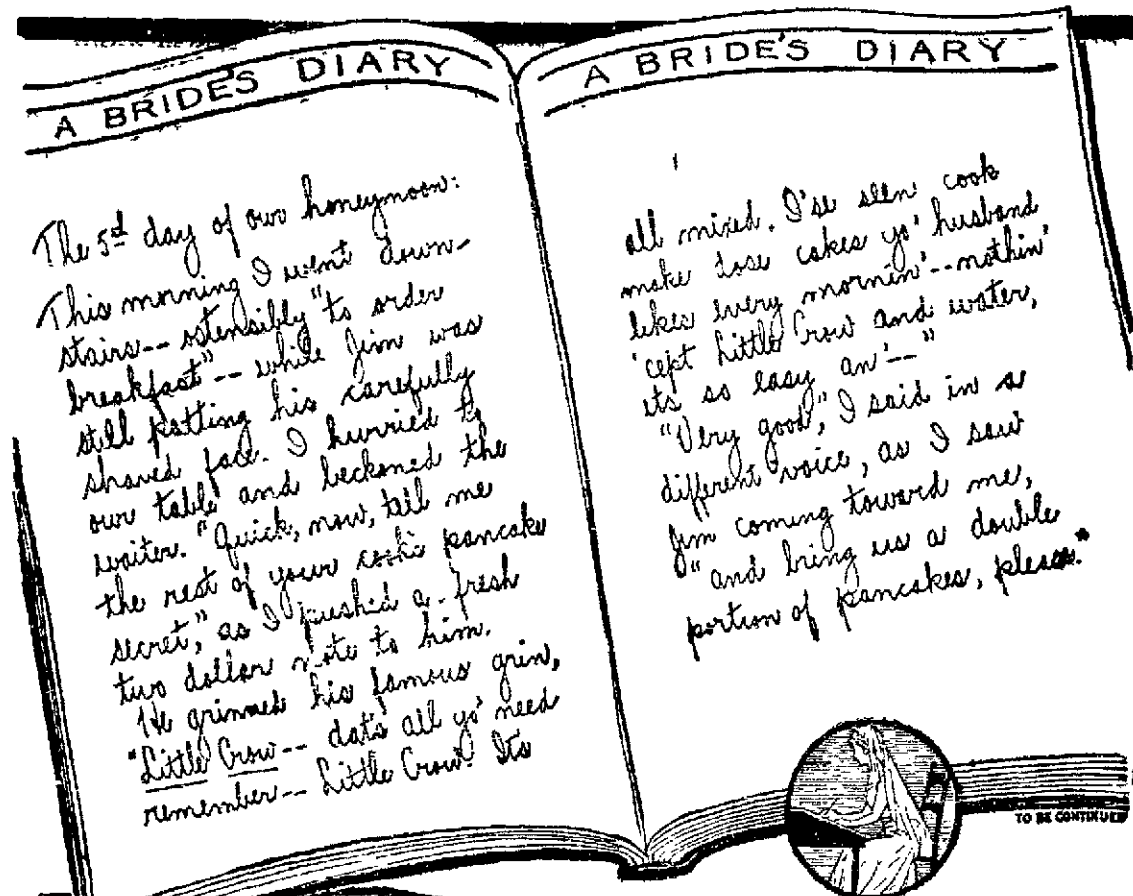 A BRIDE'S DIARY
The 5th day of our honeymoon:
This morning I went down-
stairs-- ostensibly "to order
breakfast"-- while Jim was
still patting his carefully
shaved face. I hurried to
our table and beckoned the
waiter. "Quick, now, tell me
the rest of your cook's pancake
secret," as I pushed a fresh
two dollar note to him.
He grinned his famous grin,
"Little Crow-- dat's all yo' need
remember-- Little Crow. Its
A BRIDE'S DIARY
all mixed. I'se seen cook
make dose cakes yo' husband
likes every mornin'--nothin'
'cept Little Crow and water,
its so easy an'--"
"Very good," I said in a
different voice, as I saw
Jim coming toward me,
"and bring us a double
portion of pancakes, please."
TO BE CONTINUED